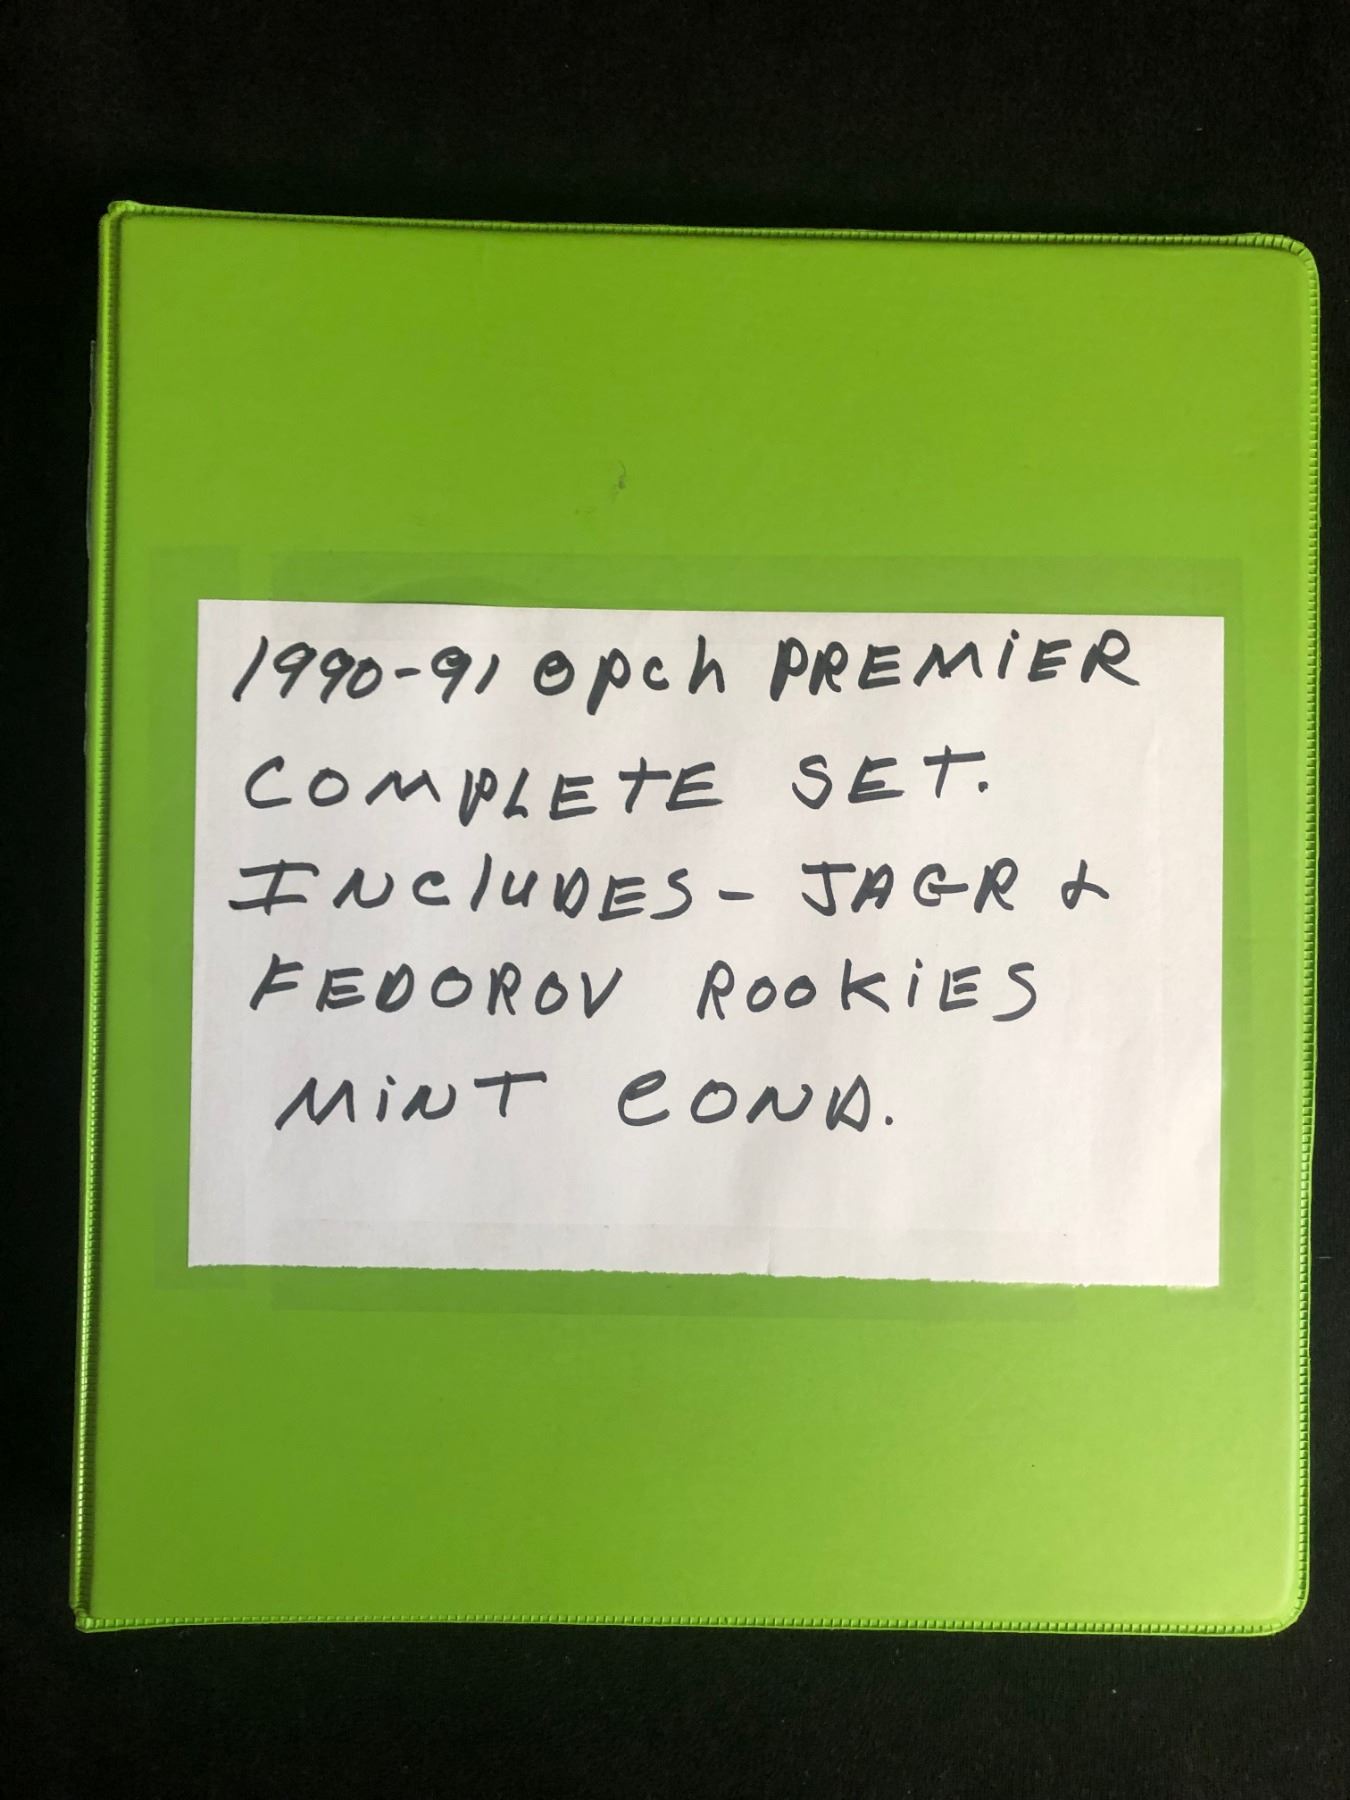 1990-91 opch PREMiER
COMPLETE SET.
INCluDES - JAGR &
FEDOROV ROOKiES
MiNT COND.